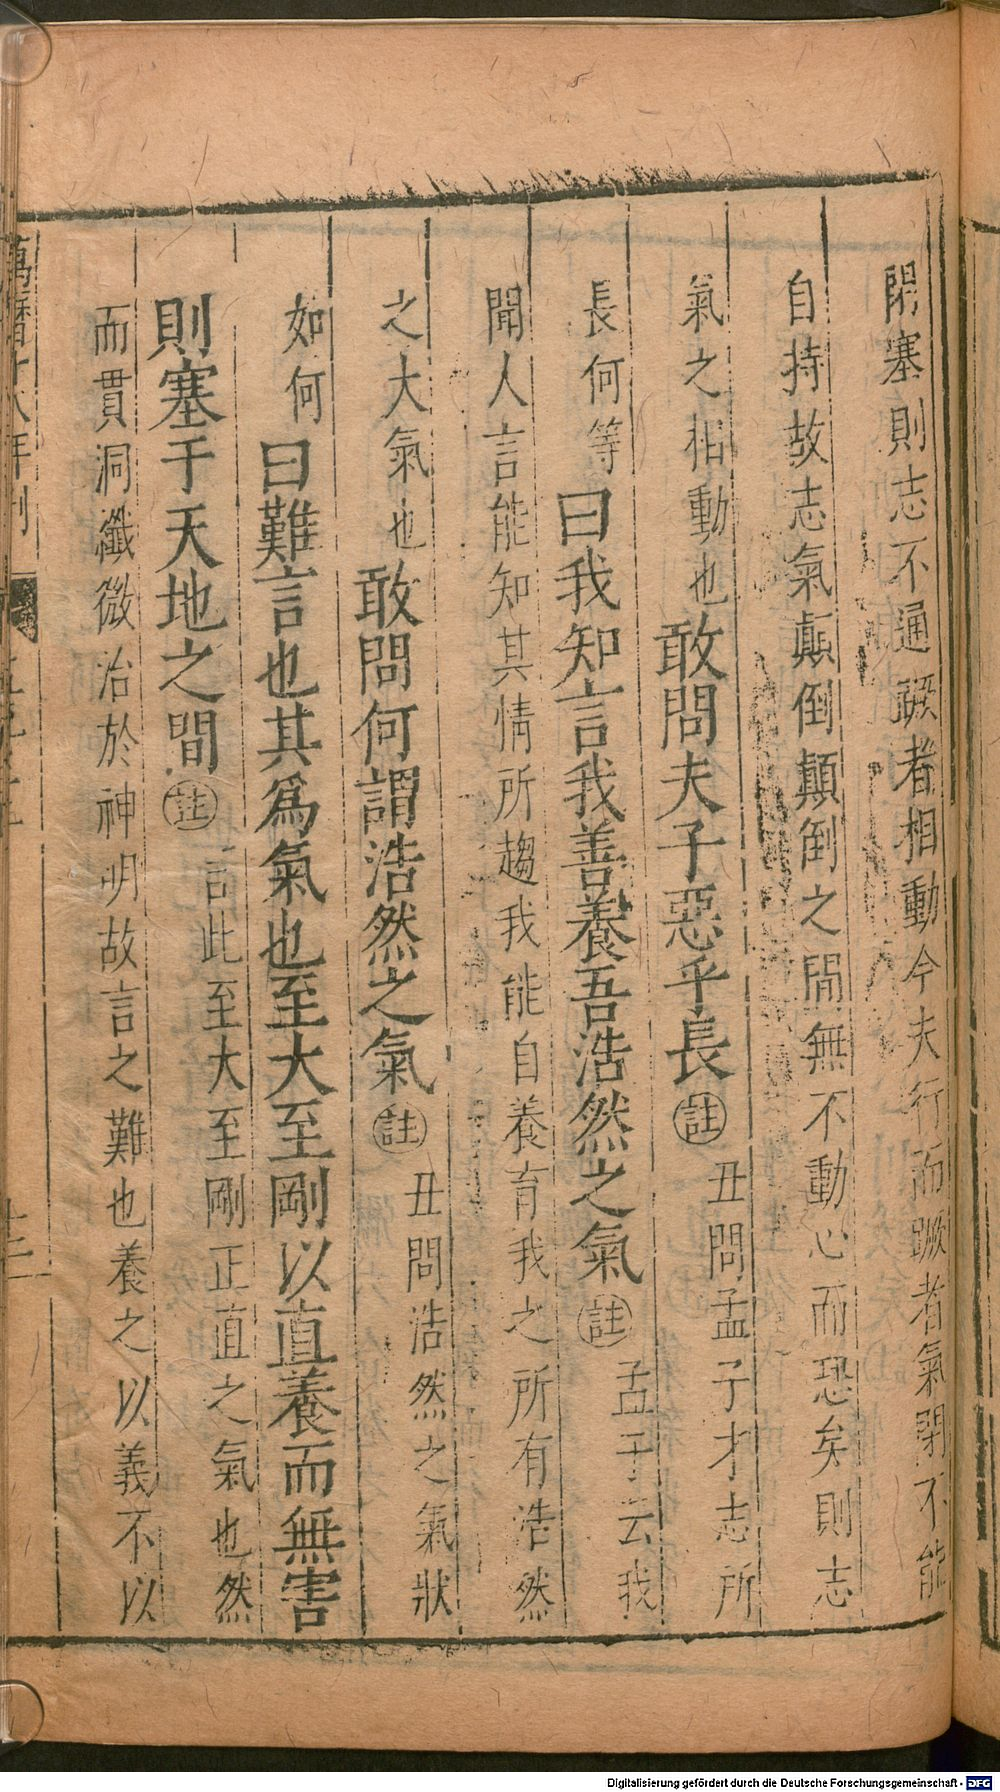 閉塞則志不通蹶者相動今夫行而蹶者氣閉不能
自持故志氣顛倒顛倒之間無不動心而恐矣則志
氣之相動也敢問夫子惡乎長註丑問孟子才志所
長何等曰我知言我善養吾浩然之氣註孟子云我
聞人言能知其情所趨我能自養育我之所有浩然
之大氣也敢問何謂浩然之氣註丑問浩然之氣狀
如何曰難言也其為氣也至大至剛以直養而無害
則塞于天地之間註言此至大至剛正直之氣也然
而貫洞纖微治於神明故言之難也養之以義不以
萬曆十八年刊
Digitalisierung gefördert durch die Deutsche Forschungsgemeinschaft - DFG